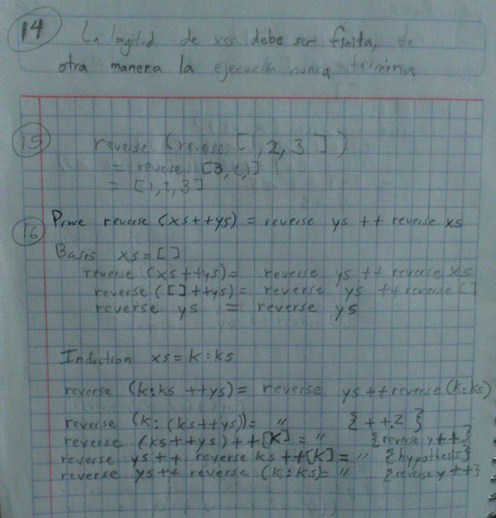 14 La longitud de xss debe ser finita, de
otra manera la ejecución nunca termina
15 reverse (reverse [1,2,3])
= reverse [3,2,1]
= [1,2,3]
16 Prove reverse (xs++ys) = reverse ys ++ reverse xs
Basis xs=[]
reverse (xs++ys)= reverse ys ++ reverse xs
reverse ([]++ys)= reverse ys ++ reverse []
reverse ys = reverse ys
Induction xs=k:ks
reverse (k:ks ++ys)= reverse ys++reverse (k:ks)
reverse (k:(ks++ys))= " {++.2}
reverse (ks++ys)++[k]= " {reverse y ++}
reverse ys++ reverse ks ++[k]= " {hypothesis}
reverse ys++ reverse (k:ks)= " {reverse y ++}